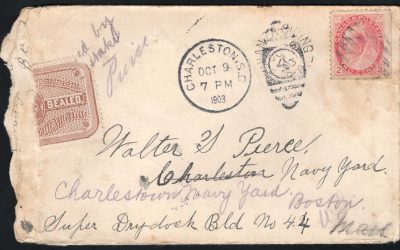 by
Pierce
SEALED
CHARLESTON, S.C.
OCT 9
7 PM
1903
Walter S Pierce,
Charleston Navy Yard.
Charlestown Navy Yard. Boston.
Super Drydock Bld No 44 Mass